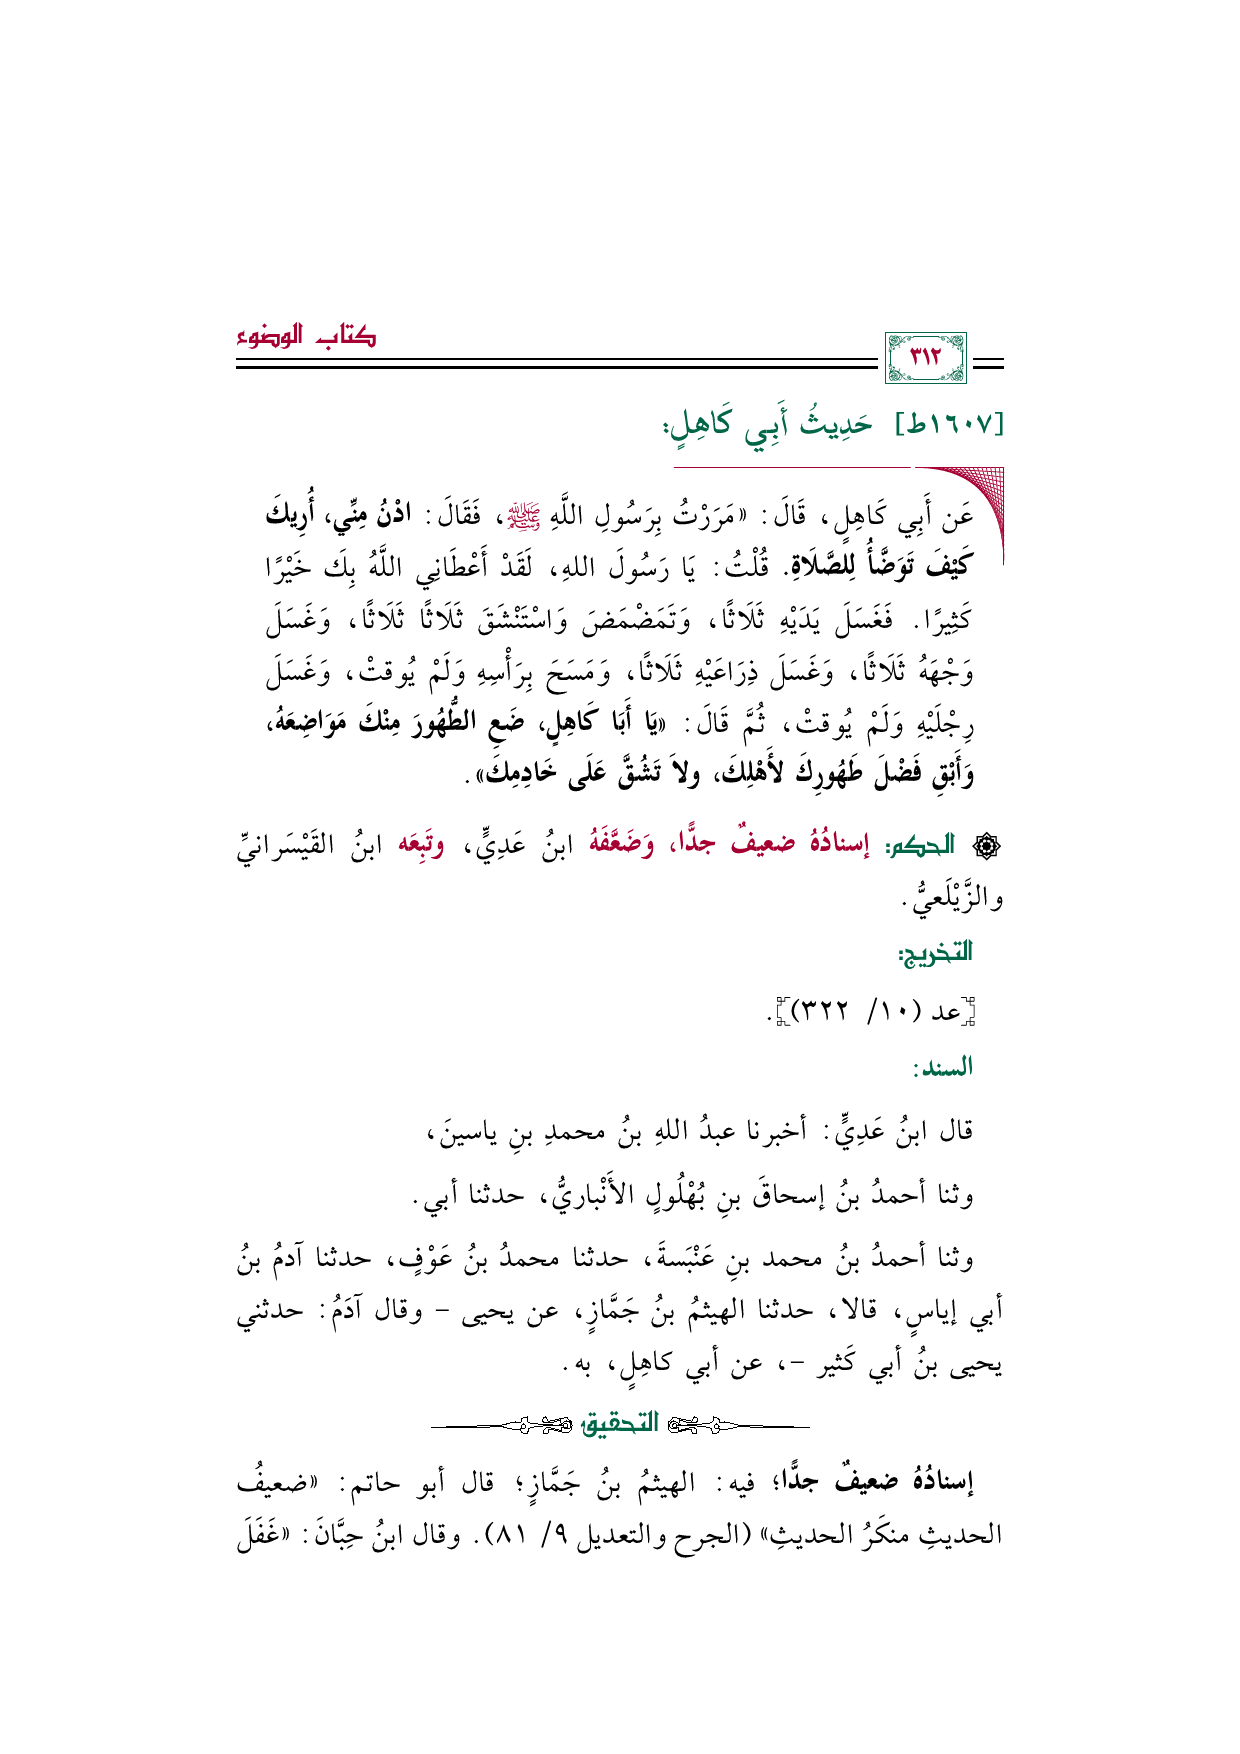 كتاب الوضوء
٣١٢
[١٦٠٧ط] حَدِيثُ أَبِي كَاهِلٍ:
عَن أَبِي كَاهِلٍ، قَالَ: «مَرَرْتُ بِرَسُولِ اللَّهِ ﷺ، فَقَالَ: ادْنُ مِنِّي، أُرِيكَ
كَيْفَ تَوَضَّأُ لِلصَّلَاةِ. قُلْتُ: يَا رَسُولَ اللهِ، لَقَدْ أَعْطَانِي اللَّهُ بِكَ خَيْرًا
كَثِيرًا. فَغَسَلَ يَدَيْهِ ثَلَاثًا، وَتَمَضْمَضَ وَاسْتَنْشَقَ ثَلَاثًا ثَلَاثًا، وَغَسَلَ
وَجْهَهُ ثَلَاثًا، وَغَسَلَ ذِرَاعَيْهِ ثَلَاثًا، وَمَسَحَ بِرَأْسِهِ وَلَمْ يُوقتْ، وَغَسَلَ
رِجْلَيْهِ وَلَمْ يُوقتْ، ثُمَّ قَالَ: «يَا أَبَا كَاهِلٍ، ضَعِ الطُّهُورَ مِنْكَ مَوَاضِعَهُ،
وَأَبْقِ فَضْلَ طَهُورِكَ لأَهْلِكَ، ولاَ تَشُقَّ عَلَى خَادِمِكَ».
الحكم: إسنادُهُ ضعيفٌ جدًّا، وَضَعَّفَهُ ابنُ عَدِيٍّ، وتَبِعَه ابنُ القَيْسَرانيِّ
والزَّيْلَعيُّ.
التخريج:
[عد (١٠/ ٣٢٢)].
السند:
قال ابنُ عَدِيٍّ: أخبرنا عبدُ اللهِ بنُ محمدِ بنِ ياسينَ،
وثنا أحمدُ بنُ إسحاقَ بنِ بُهْلُولٍ الأَنْباريُّ، حدثنا أبي.
وثنا أحمدُ بنُ محمد بنِ عَنْبَسةَ، حدثنا محمدُ بنُ عَوْفٍ، حدثنا آدمُ بنُ
أبي إياسٍ، قالا، حدثنا الهيثمُ بنُ جَمَّازٍ، عن يحيى – وقال آدَمُ: حدثني
يحيى بنُ أبي كَثير –، عن أبي كاهِلٍ، به.
التحقيق
إسنادُهُ ضعيفٌ جدًّا؛ فيه: الهيثمُ بنُ جَمَّازٍ؛ قال أبو حاتم: «ضعيفُ
الحديثِ منكَرُ الحديثِ» (الجرح والتعديل ٩/ ٨١). وقال ابنُ حِبَّانَ: «غَفَلَ